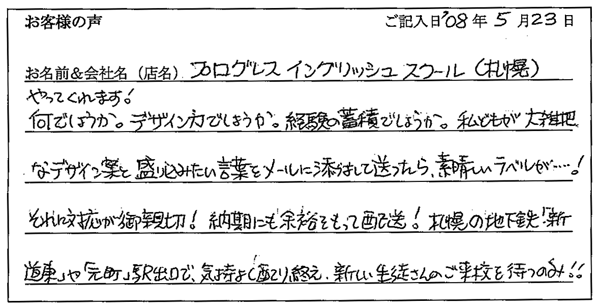 お客様の声 ご記入日'08年5月23日
お名前&会社名（店名） プログレス イングリッシュ スクール (札幌)
やってくれます!
何でしょうか。デザイン力でしょうか。経験の蓄積でしょうか。私どもが大雑把
なデザイン案と盛り込みたい言葉をメールに添付して送ったら、素晴しいラベルが……!
それに対応が御親切! 納期にも余裕をもって配送! 札幌の地下鉄「新
道東」や「元町」駅出口で、気持よく配り終え、新しい生徒さんのご来校を待つのみ!!